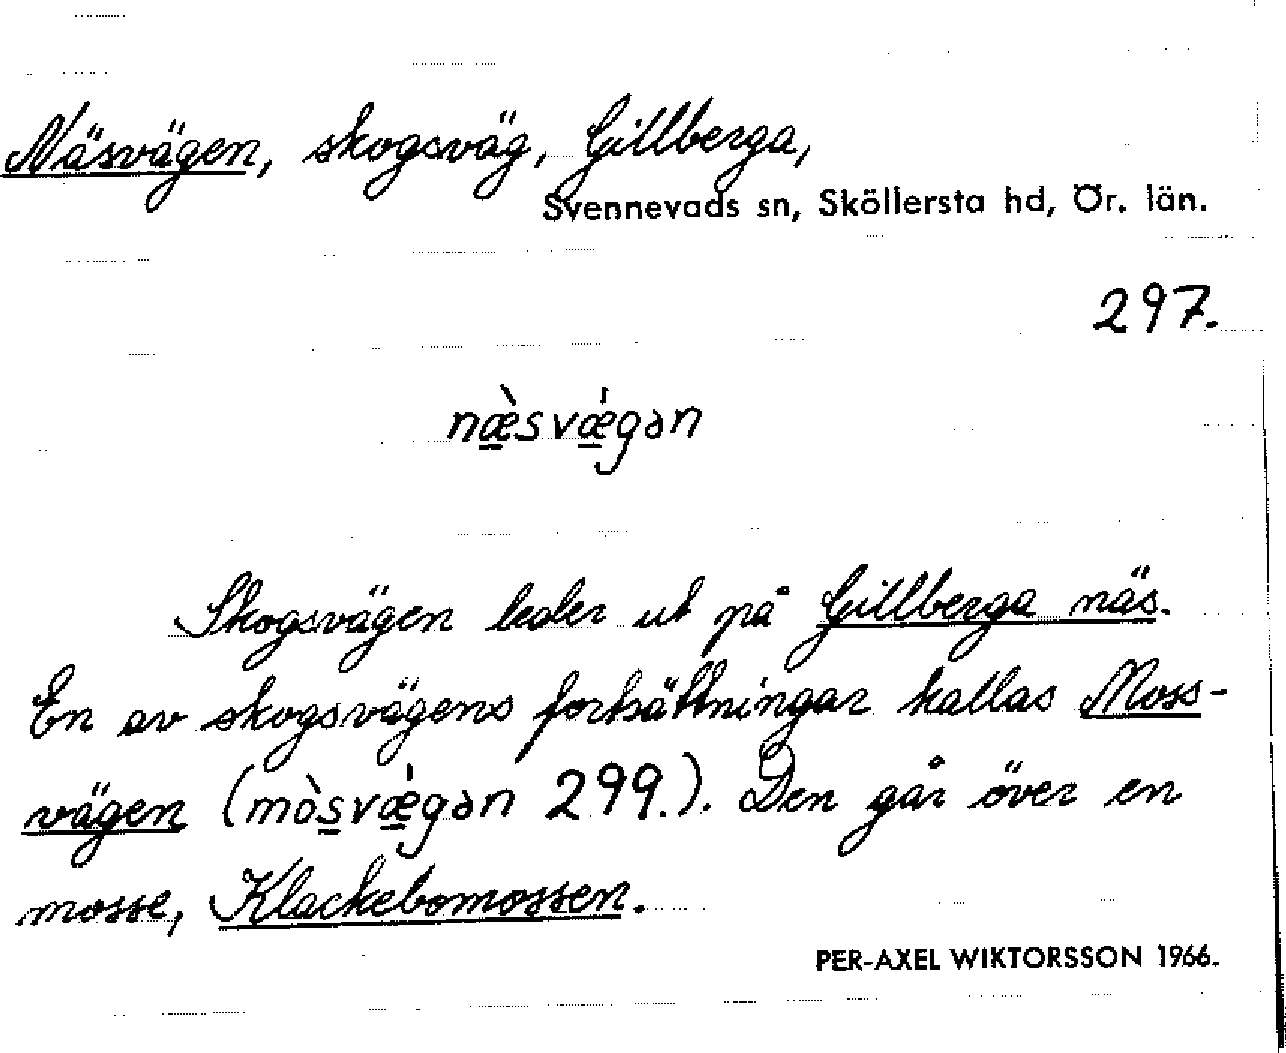 Näsvägen, skogsväg, Gillberga,
Svennevads sn, Sköllersta hd, Ör. län.
297.
næ̀svǽgən
Skogsvägen leder ut på Gillberga näs.
En av skogsvägens fortsättningar kallas Moss-
vägen (mòsvǽgən 299.). Den går över en
mosse, Klackebomossen.
PER-AXEL WIKTORSSON 1966.